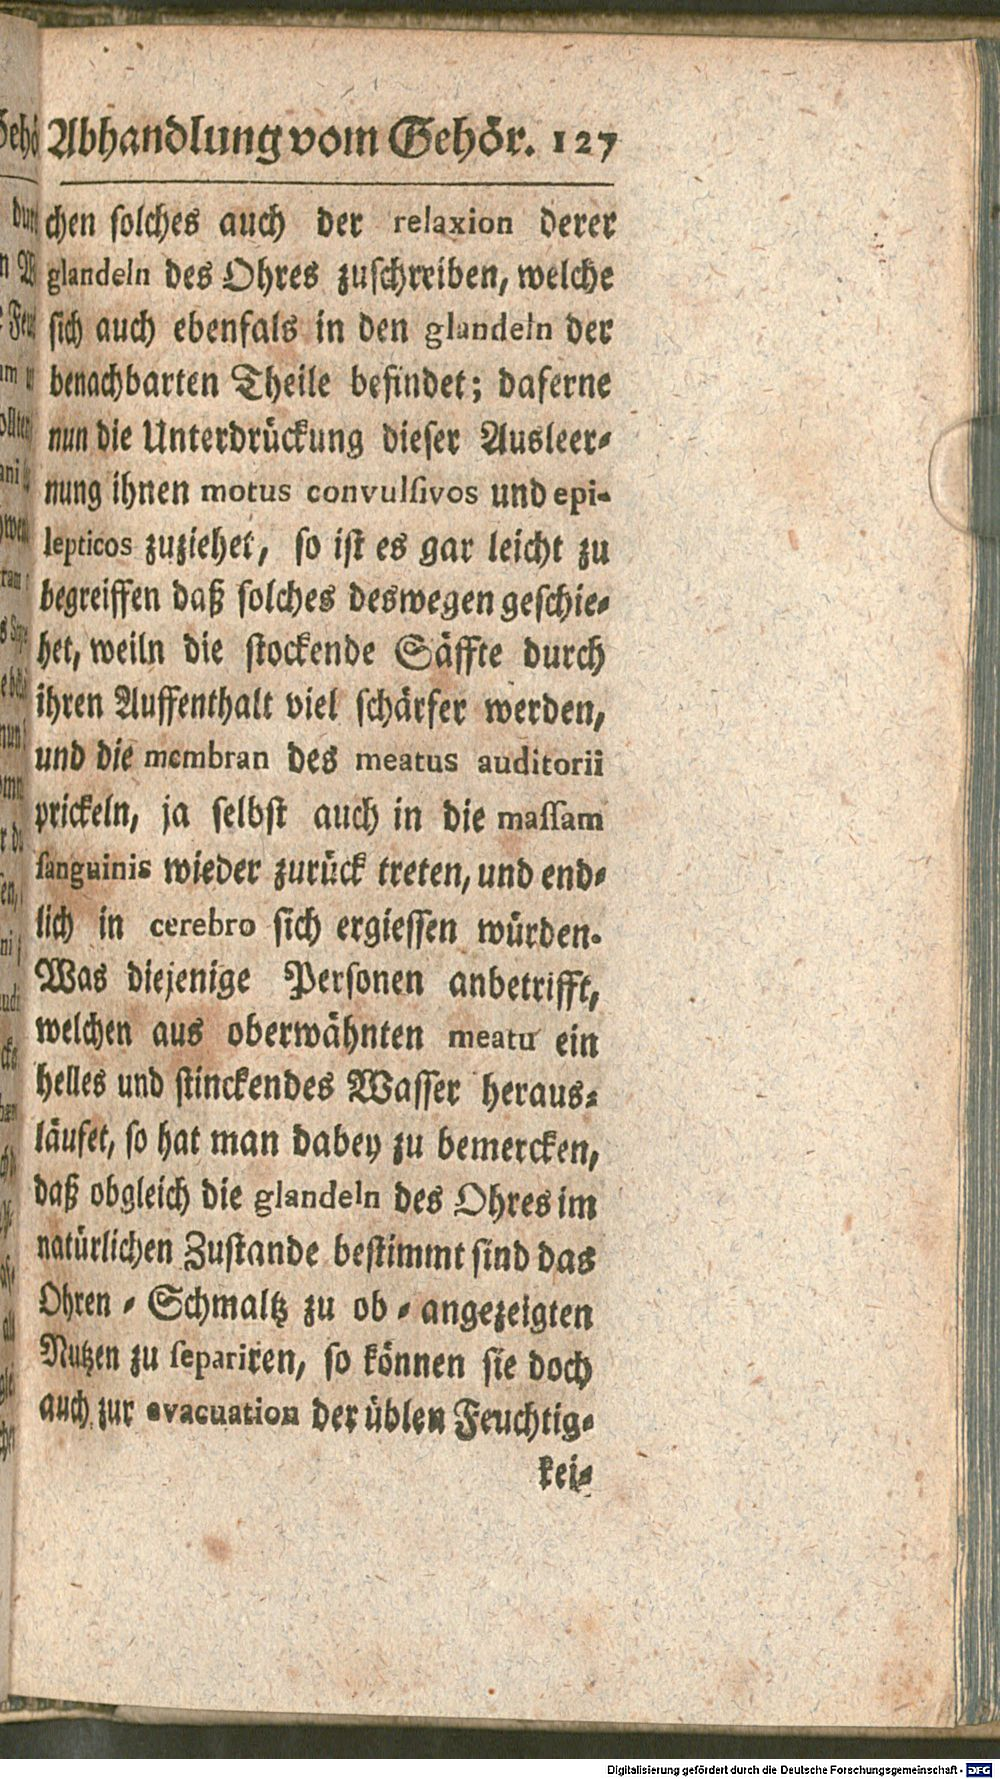 Abhandlung vom Gehör. 127
chen solches auch der relaxion derer
glandeln des Ohres zuschreiben, welche
sich auch ebenfals in den glandeln der
benachbarten Theile befindet; daferne
nun die Unterdrückung dieser Ausleer-
nung ihnen motus convulsivos und epi-
lepticos zuziehet, so ist es gar leicht zu
begreiffen daß solches deswegen geschie-
het, weiln die stockende Säffte durch
ihren Auffenthalt viel schärfer werden,
und die membran des meatus auditorii
prickeln, ja selbst auch in die massam
sanguinis wieder zurück treten, und end-
lich in cerebro sich ergiessen würden.
Was diejenige Personen anbetrifft,
welchen aus oberwähnten meatu ein
helles und stinckendes Wasser heraus-
läufet, so hat man dabey zu bemercken,
daß obgleich die glandeln des Ohres im
natürlichen Zustande bestimmt sind das
Ohren-Schmaltz zu ob-angezeigten
Nutzen zu separiren, so können sie doch
auch zur evacuation der üblen Feuchtig-
kei-
Digitalisierung gefördert durch die Deutsche Forschungsgemeinschaft - DFG